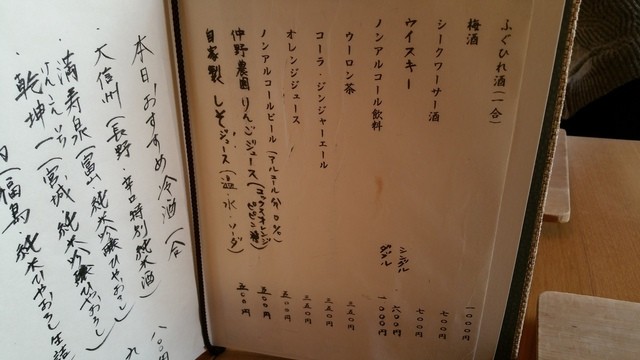 ふぐひれ酒(一合) 一〇〇〇円
梅酒 七〇〇円
シークワーサー酒 七〇〇円
ウイスキー シングル 六〇〇円
ダブル 一〇〇〇円
ノンアルコール飲料
ウーロン茶 三五〇円
コーラ・ジンジャーエール 三五〇円
オレンジジュース 三五〇円
ノンアルコールビール(アルコール分0%) 五〇〇円
仲野農園りんごジュース 五〇〇円
自家製しそジュース(温・水・ソーダ) 五〇〇円
本日おすすめ冷酒(合
・大信州(長野・辛口特別純米酒) 八〇〇円
・満寿泉(富山・純米吟醸ひやおろし) 九
・乾坤一(宮城・純米吟醸ひやおろし)
(福島・純米ひやおろし生詰